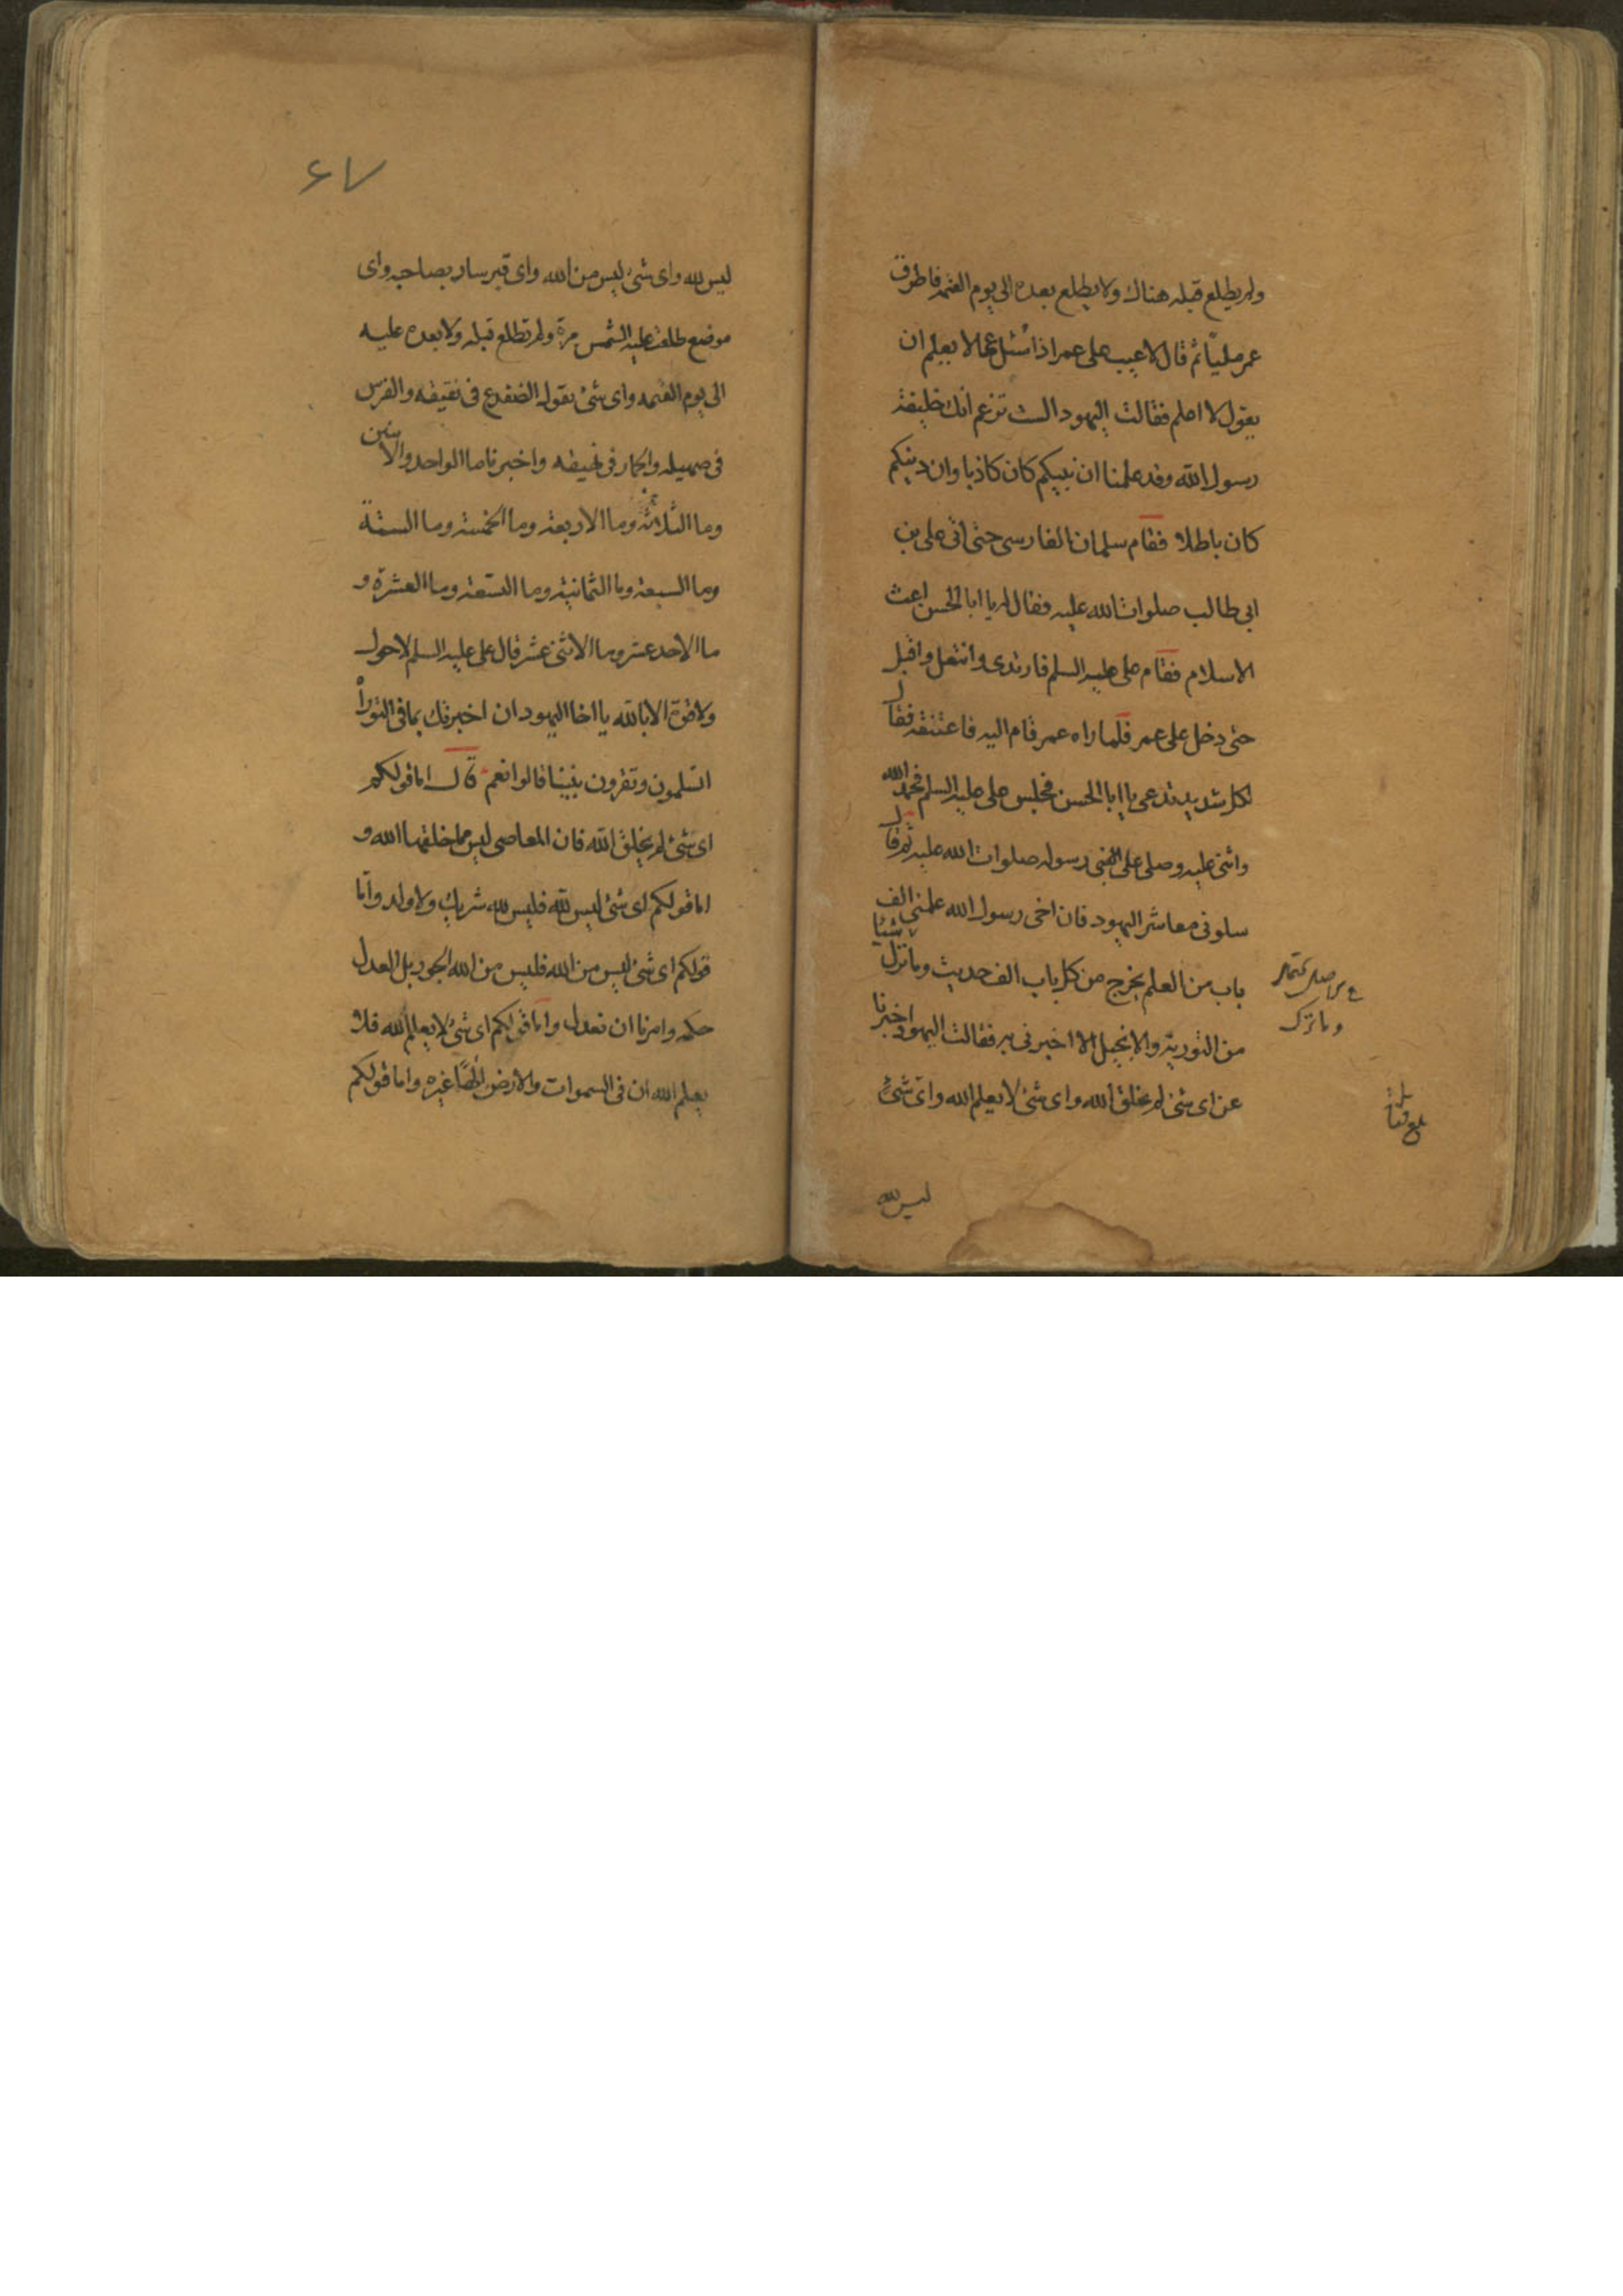 ولم يطلع قبله هناك ولا يطلع بعده الى يوم القيمة فاطرق
عمر مليّا ثم قال لا عيب على عمر اذا سُئل عما لا يعلم ان
يقول لا اعلم فقالت اليهود الست تزعم انك خليفة
رسول الله وقد علمنا ان نبيكم كان كاذبا وان دينكم
كان باطلا فقام سلمان الفارسى حتى اتى على بن
ابى طالب صلوات الله عليه فقال له يا ابا الحسن اعث
الاسلام فقام على عليه السلم فارتدى وانتعل واقبل
حتى دخل على عمر فلما راه عمر قام اليه فاعتنقه فقال
لكل شديد تدعى يا ابا الحسن فجلس على عليه السلم فحمد الله
واثنى عليه وصلى على النبى رسوله صلوات الله عليه ثم قال
سلونى معاشر اليهود فان اخى رسول الله علمنى الف
باب من العلم يخرج من كل باب الف حديث وما نزل شيئا
من التورية والانجيل الا اخبرنى به فقالت اليهود اخبرنا
عن اى شئ لم يخلق الله واى شئ لا يعلم الله واى شئ
وما ترك
بلغ
ليس لله
٦٧
ليس لله واى شئ ليس من الله واى قبر سار بصاحبه واى
موضع طلعت عليه الشمس مرة ولم تطلع قبله ولا بعده عليه
الى يوم القيمه واى شئ تقوله الضفدع فى نقيقه والفرس
فى صهيله والحمار فى نهيقه واخبرنا ما الواحد والاثنين
وما الثلاثة وما الاربعة وما الخمسة وما الستة
وما السبعة وما الثمانية وما التسعة وما العشرة و
ما الاحد عشر وما الاثنى عشر قال على عليه السلم لا حول
ولا قوة الا بالله يا اخا اليهود ان اخبرتك بما فى التوراة
اتسلمون وتقرون بنبينا قالوا نعم قال اما قولكم
اى شئ لم يخلق الله فان المعاصى ليس مما خلقها الله و
اما قولكم اى شئ ليس لله فليس لله شريك ولا ولد واما
قولكم اى شئ ليس من الله فليس من الله الجور بل العدل
حكمه وامرنا ان نعدل واما قولكم اى شئ لا يعلم الله فلا
يعلم الله ان فى السموات والارض الها غيره واما قولكم